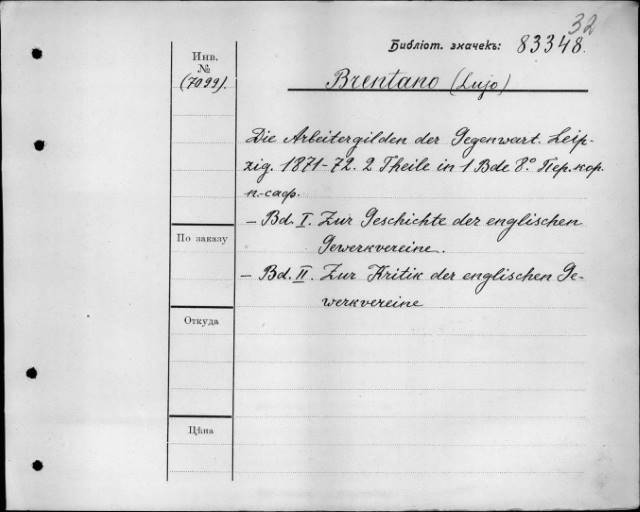 32
Библіот. значекъ: 83348.
Инв.
№
(7099).
Brentano (Lujo)
Die Arbeitergilden der Gegenwart. Leip-
zig. 1871-72. 2 Theile in 1 Bde 8° Пер. кор.
п.-саф.
– Bd. I. Zur Geschichte der englischen
Gewerkvereine.
– Bd. II. Zur Kritik der englischen Ge-
werkvereine
По заказу
Откуда
Цѣна